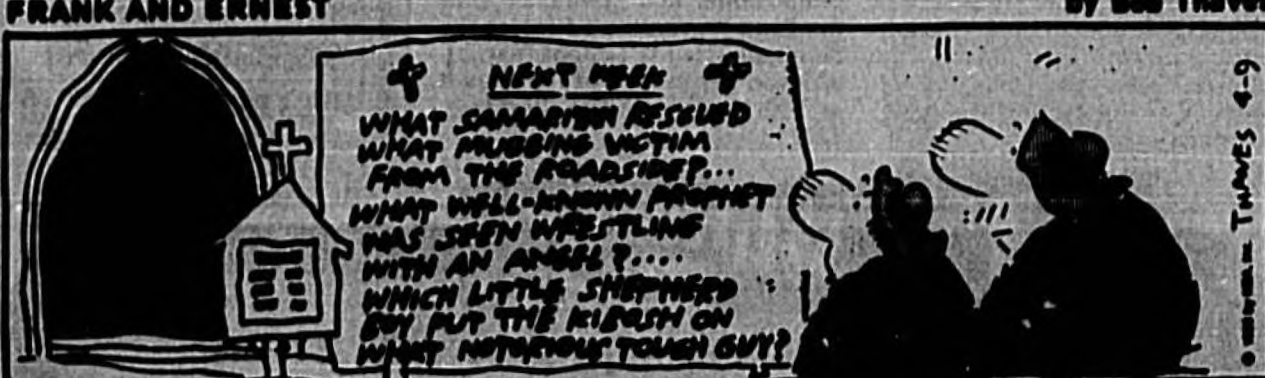 FRANK AND ERNEST
by Bob Thaves
NEXT WEEK
WHAT SAMARITAN RESCUED
WHAT MUGGING VICTIM
FROM THE ROADSIDE?...
WHAT WELL-KNOWN PROPHET
WAS SEEN WRESTLING
WITH AN ANGEL?....
WHICH LITTLE SHEPHERD
BOY PUT THE KIBOSH ON
WHAT NOTORIOUS TOUGH GUY?
THAVES 4-9